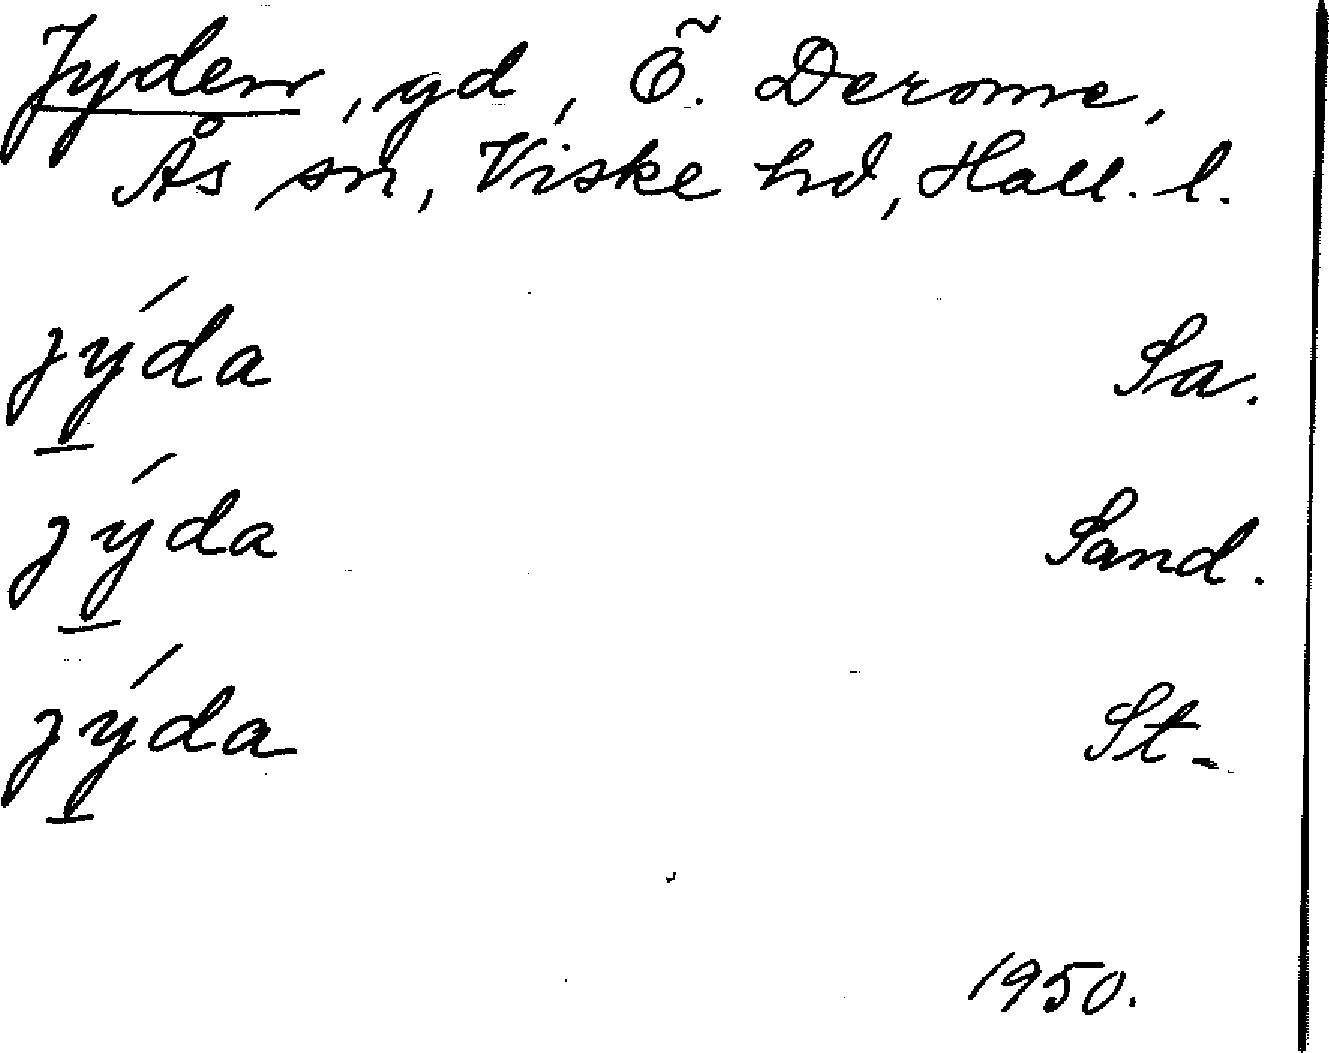 Jyden, gd, Ö. Derome,
Ås sn, Viske hd, Hall. l.
jýda Sa.
jýda Sand.
jýda St.
1950.